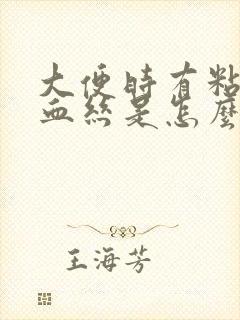 大便时有粘
血丝是怎麼
王海芳